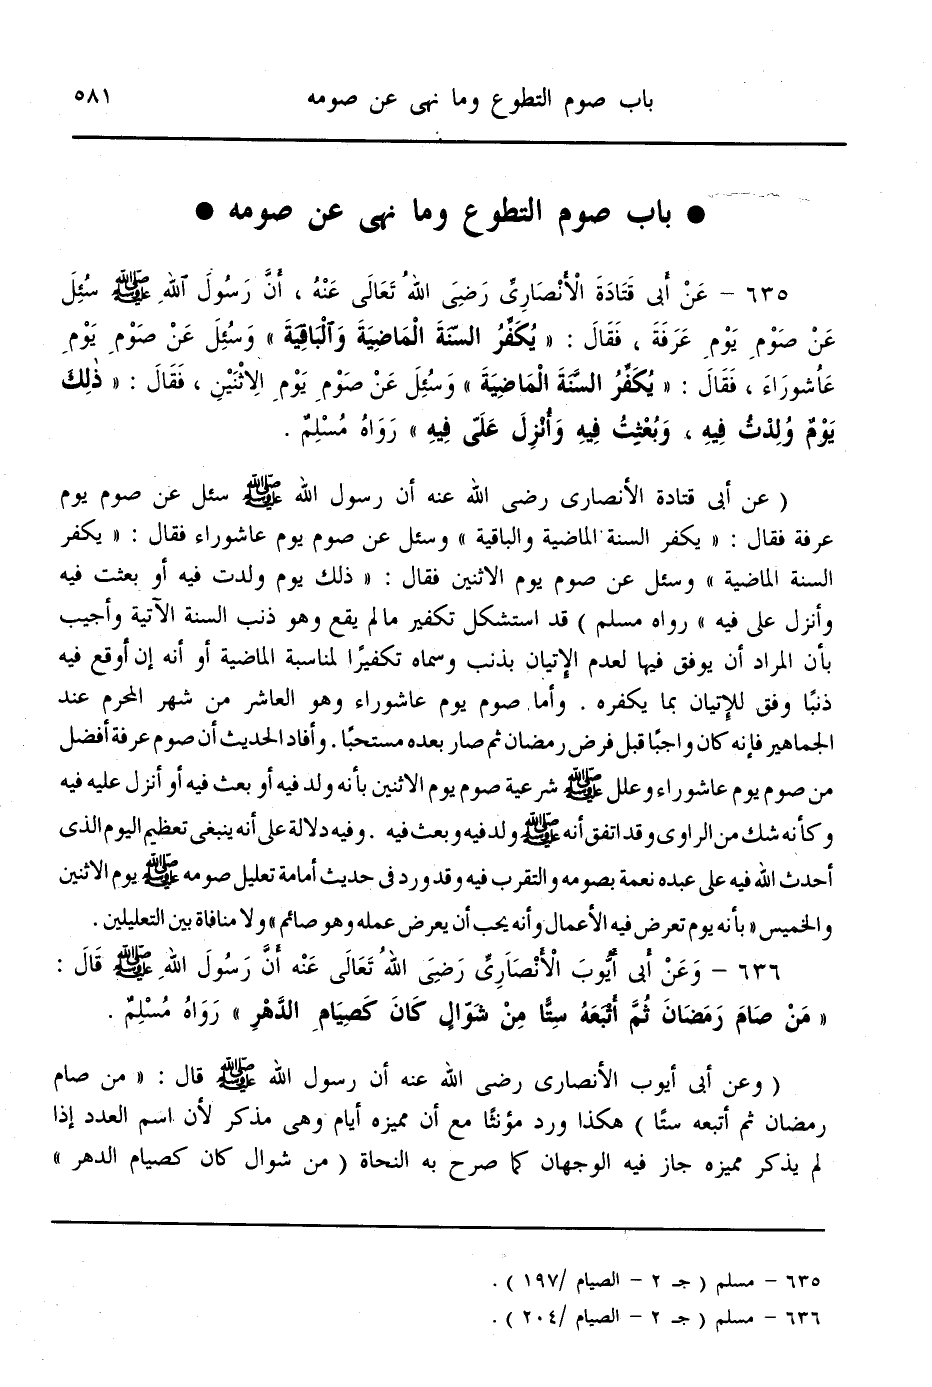 باب صوم التطوع وما نهى عن صومه ٥٨١
● باب صوم التطوع وما نهى عن صومه ●
٦٣٥ – عَنْ أَبى قَتَادَةَ الْأَنْصَارِىِّ رَضِىَ اللهُ تَعَالَى عَنْهُ ، أَنَّ رَسُولَ اللهِ ﷺ سُئِلَ
عَنْ صَوْمِ يَوْمِ عَرَفَةَ ، فَقَالَ : « يُكَفِّرُ السَّنَةَ الْمَاضِيَةَ وَالْبَاقِيَةَ » وَسُئِلَ عَنْ صَوْمِ يَوْمِ
عَاشُورَاءَ ، فَقَالَ : « يُكَفِّرُ السَّنَةَ الْمَاضِيَةَ » وَسُئِلَ عَنْ صَوْمِ يَوْمِ الِاثْنَيْنِ ، فَقَالَ : « ذٰلِكَ
يَوْمٌ وُلِدْتُ فِيهِ ، وَبُعْثِتُ فِيهِ وَأُنْزِلَ عَلَىَّ فِيهِ » رَوَاهُ مُسْلِمٌ .
( عن أبى قتادة الأنصارى رضى الله عنه أن رسول الله ﷺ سئل عن صوم يوم
عرفة فقال : « يكفر السنة الماضية والباقية » وسئل عن صوم يوم عاشوراء فقال : « يكفر
السنة الماضية » وسئل عن صوم يوم الاثنين فقال : « ذلك يوم ولدت فيه أو بعثت فيه
وأنزل على فيه » رواه مسلم ) قد استشكل تكفير مالم يقع وهو ذنب السنة الآتية وأجيب
بأن المراد أن يوفق فيها لعدم الإتيان بذنب وسماه تكفيرًا لمناسبة الماضية أو أنه إن أوقع فيه
ذنبًا وفق للإتيان بما يكفره . وأما صوم يوم عاشوراء وهو العاشر من شهر المحرم عند
الجماهير فإنه كان واجبًا قبل فرض رمضان ثم صار بعده مستحبًا . وأفاد الحديث أن صوم عرفة أفضل
من صوم يوم عاشوراء وعلل ﷺ شرعية صوم يوم الاثنين بأنه ولد فيه أو بعث فيه أو أنزل عليه فيه
وكأنه شك من الراوى وقد اتفق أنه ﷺ ولد فيه وبعث فيه . وفيه دلالة على أنه ينبغى تعظيم اليوم الذى
أحدث الله فيه على عبده نعمة بصومه والتقرب فيه وقد ورد فى حديث أمامة تعليل صومه ﷺ يوم الاثنين
والخميس « بأنه يوم تعرض فيه الأعمال وأنه يحب أن يعرض عمله وهو صائم » ولا منافاة بين التعليلين .
٦٣٦ – وَعَنْ أَبى أَيُّوبَ الْأَنْصَارِىِّ رَضِىَ اللهُ تَعَالَى عَنْه أَنَّ رَسُولَ اللهِ ﷺ قَالَ :
« مَنْ صَامَ رَمَضَانَ ثُمَّ أَتْبَعَهُ سِتًّا مِنْ شَوَّالٍ كَانَ كَصِيَامِ الدَّهْرِ » رَوَاهُ مُسْلِمٌ .
( وعن أبى أيوب الأنصارى رضى الله عنه أن رسول الله ﷺ قال : « من صام
رمضان ثم أتبعه ستًا ) هكذا ورد مؤنثًا مع أن مميزه أيام وهى مذكر لأن اسم العدد إذا
لم يذكر مميزه جاز فيه الوجهان كما صرح به النحاة ( من شوال كان كصيام الدهر »
٦٣٥ – مسلم ( جـ ٢ – الصيام /١٩٧ ) .
٦٣٦ – مسلم ( جـ ٢ – الصيام /٢٠٤ ) .